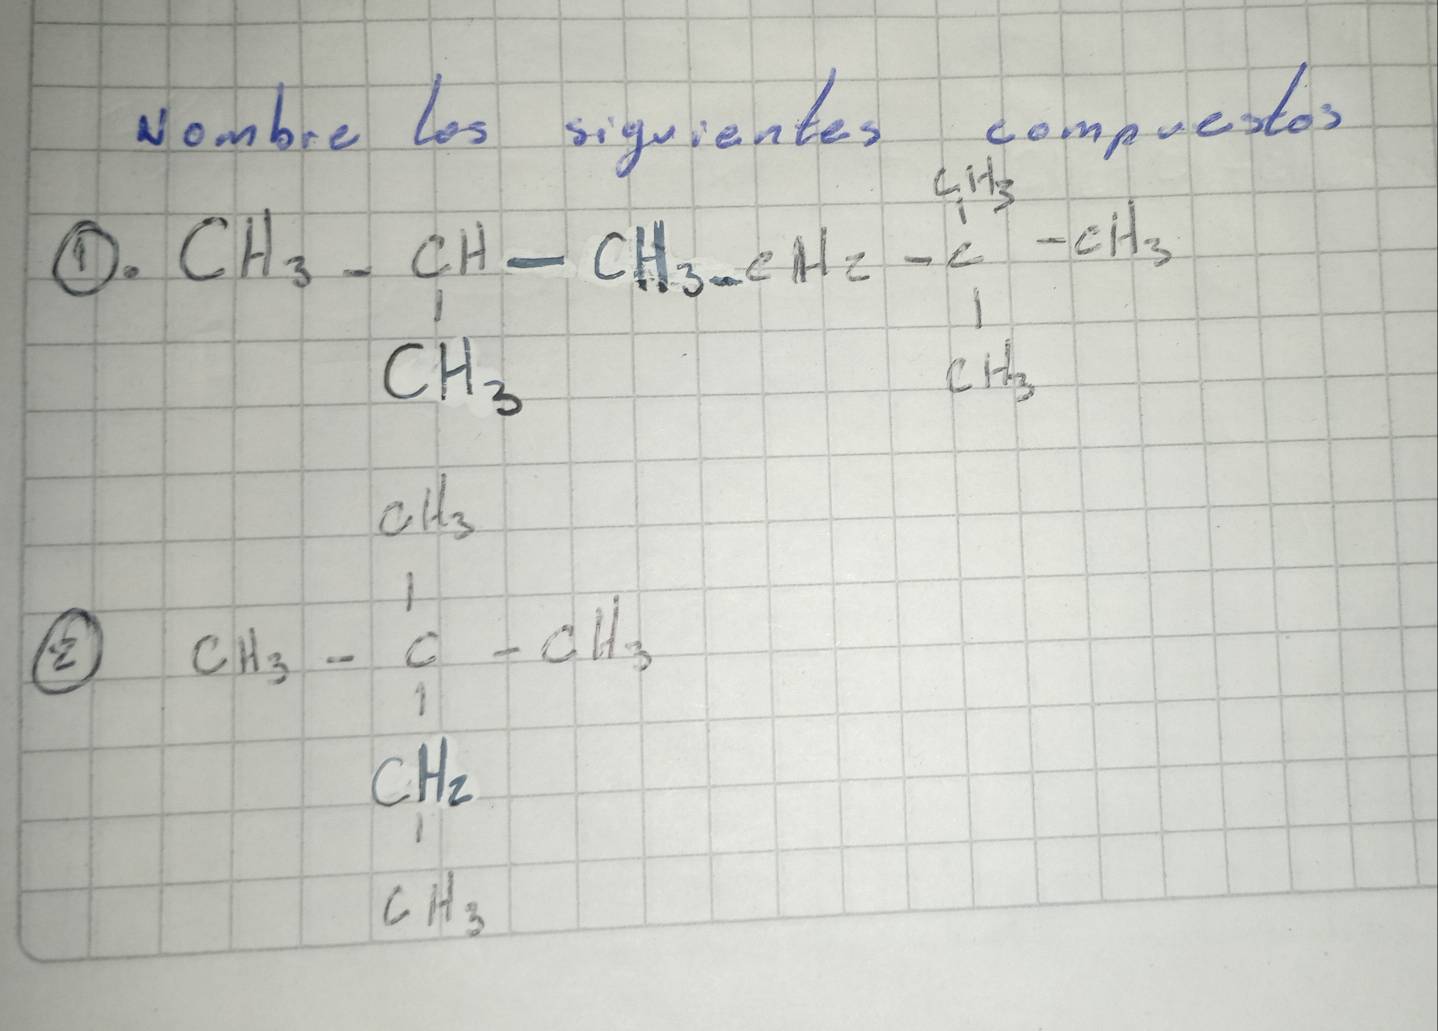 Nombre los siguientes compuestos
CH3
①. CH3 - CH — CH3 - CH2 - C - CH3
CH3 CH3
CH3
② CH3 - C - CH3
CH2
CH3